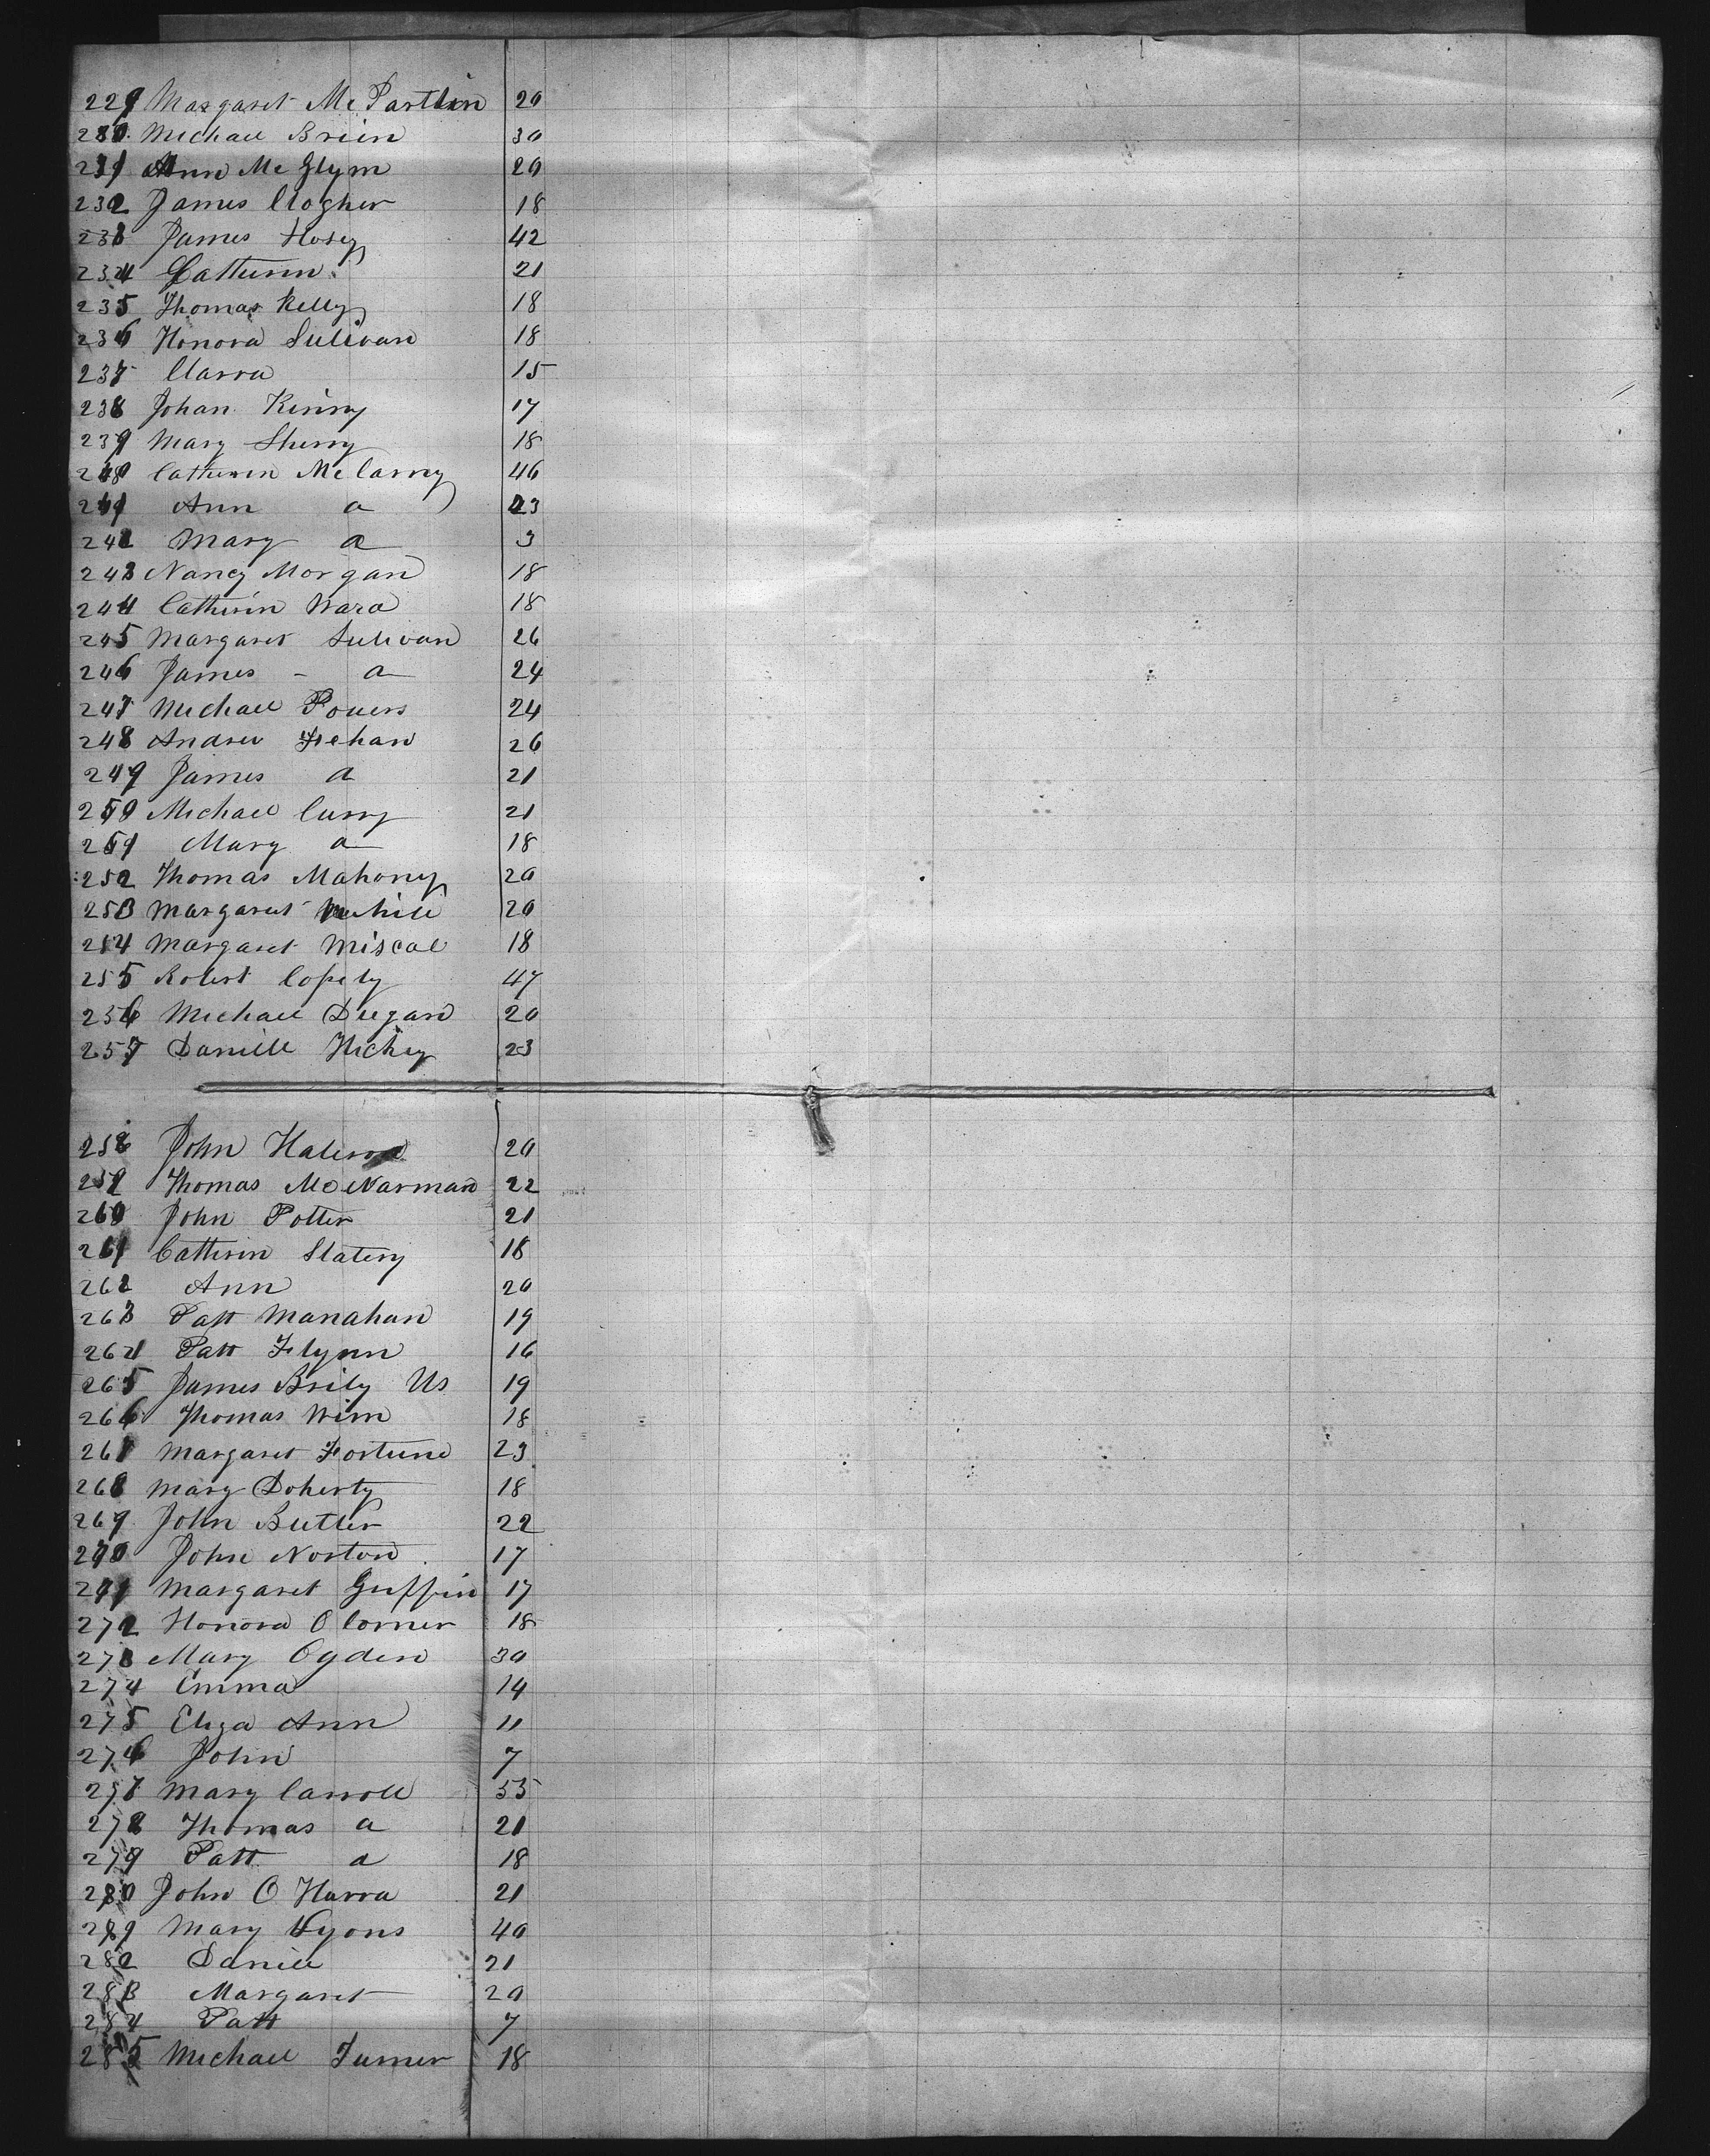 229 Margaret McPartlin 20
230 Michael Brien 30
231 Ann McGlym 20
232 James Clogher 18
233 James Hosey 42
234 Catherin 21
235 Thomas Kelly 18
236 Honora Sulivan 18
237 Clarra 15
238 Johan Kinny 17
239 Mary Sherry 18
240 Catherin McCarny 46
241 Ann a 23
242 Mary a 3
243 Nancy Morgan 18
244 Catherin Ward 18
245 Margaret Sulivan 26
246 James - a 24
247 Michael Powers 24
248 Andrew Fehan 26
249 James a 21
250 Michael Curry 21
251 Mary a 18
252 Thomas Mahony 20
253 Margaret 20
254 Margaret Miscal 18
255 Robert 47
256 Michael Deegan 20
257 Daniell Hickey 23
258 John 20
259 Thomas McNarman 22
260 John Potter 21
261 Catherin Slatery 18
262 Ann 20
263 Patt Manahan 19
264 Patt Flynn 16
265 James Brily Us 19
266 Thomas Winn 18
267 Margaret Fortune 23
268 Mary Doherty 18
269 John Butler 22
270 John Norton 17
271 Margaret Griffin 17
272 Honora O Conner 18
273 Mary Ogden 30
274 Emma 14
275 Eliza Ann 11
276 John 7
277 Mary Carroll 55
278 Thomas a 21
279 Patt a 18
280 John O Harra 21
281 Mary Lyons 40
282 Daniel 21
283 Margaret 20
284 Patt 7
285 Michael Turner 18